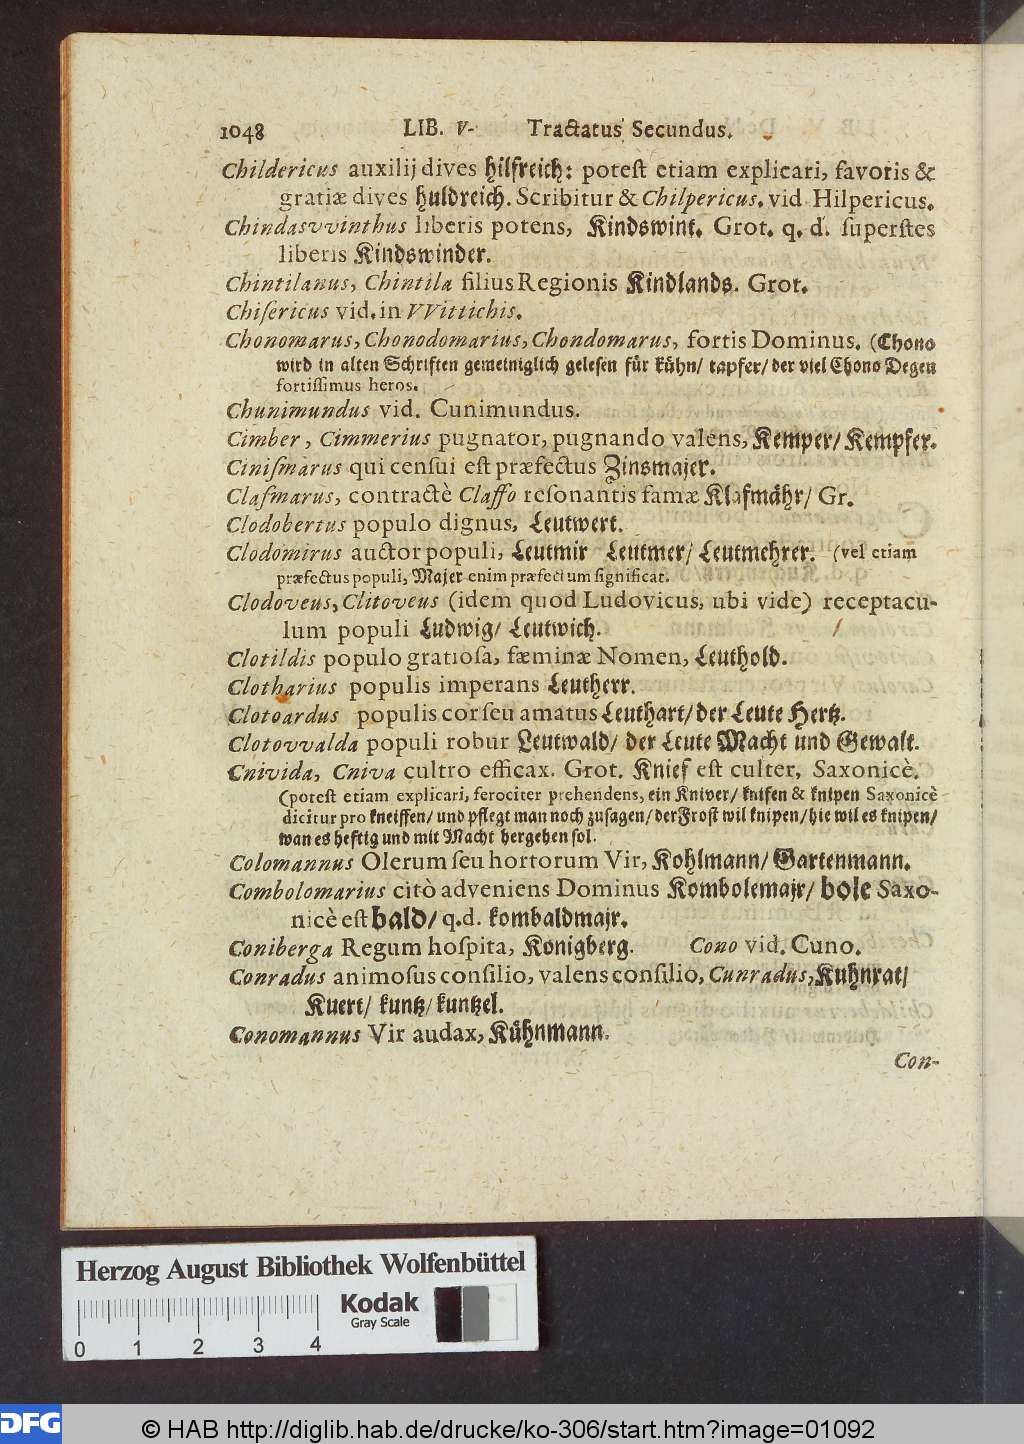 1048 LIB. V. Tractatus Secundus.
Childericus auxilij dives hilfreich: potest etiam explicari, favoris &
gratiæ dives huldreich. Scribitur & Chilpericus. vid Hilpericus.
Chindasvvinthus liberis potens, Kindswint. Grot. q. d. superstes
liberis Kindswinder.
Chintilanus, Chintila filius Regionis Kindlands. Grot.
Chisericus vid. in VVittichis.
Chonomarus, Chonodomarius, Chondomarus, fortis Dominus. (Chono
wird in alten Schriften gemeiniglich gelesen für kühn/ tapfer/ der viel Chono Degen
fortissimus heros.
Chunimundus vid. Cunimundus.
Cimber, Cimmerius pugnator, pugnando valens, Kemper/ Kempfer.
Cinismarus qui censui est præfectus Zinsmajer.
Clasmarus, contractè Classo resonantis famæ Klafmähr/ Gr.
Clodobertus populo dignus, Leutwert.
Clodomirus auctor populi, Leutmir Leutmer/ Leutmehrer. (vel etiam
præfectus populi, Majer enim præfectum significat.
Clodoveus, Clitoveus (idem quod Ludovicus, ubi vide) receptacu-
lum populi Ludwig/ Leutwich.
Clotildis populo gratiosa, fæminæ Nomen, Leuthold.
Clotharius populis imperans Leutherr.
Clotoardus populis cor seu amatus Leuthart/ der Leute Hertz.
Clotovvalda populi robur Leutwald/ der Leute Macht und Gewalt.
Cnivida, Cniva cultro efficax. Grot. Knief est culter, Saxonicè.
(potest etiam explicari, ferociter prehendens, ein Kniver/ knifen & knipen Saxonicè
dicitur pro kneiffen/ und pflegt man noch zusagen/ der Frost wil knipen/ hie wil es knipen/
wan es heftig und mit Macht hergehen sol.
Colomannus Olerum seu hortorum Vir, Kohlmann/ Gartenmann.
Combolomarius citò adveniens Dominus Kombolemajr/ bole Saxo-
nicè est bald/ q.d. kombaldmajr.
Coniberga Regum hospita, Konigberg. Cono vid. Cuno.
Conradus animosus consilio, valens consilio, Cunradus, Kuhnrat/
Kuert/ kuntz/ kuntzel.
Conomannus Vir audax, Kühnmann.
Con-
Herzog August Bibliothek Wolfenbüttel
Kodak
Gray Scale
0 1 2 3 4
DFG
© HAB http://diglib.hab.de/drucke/ko-306/start.htm?image=01092